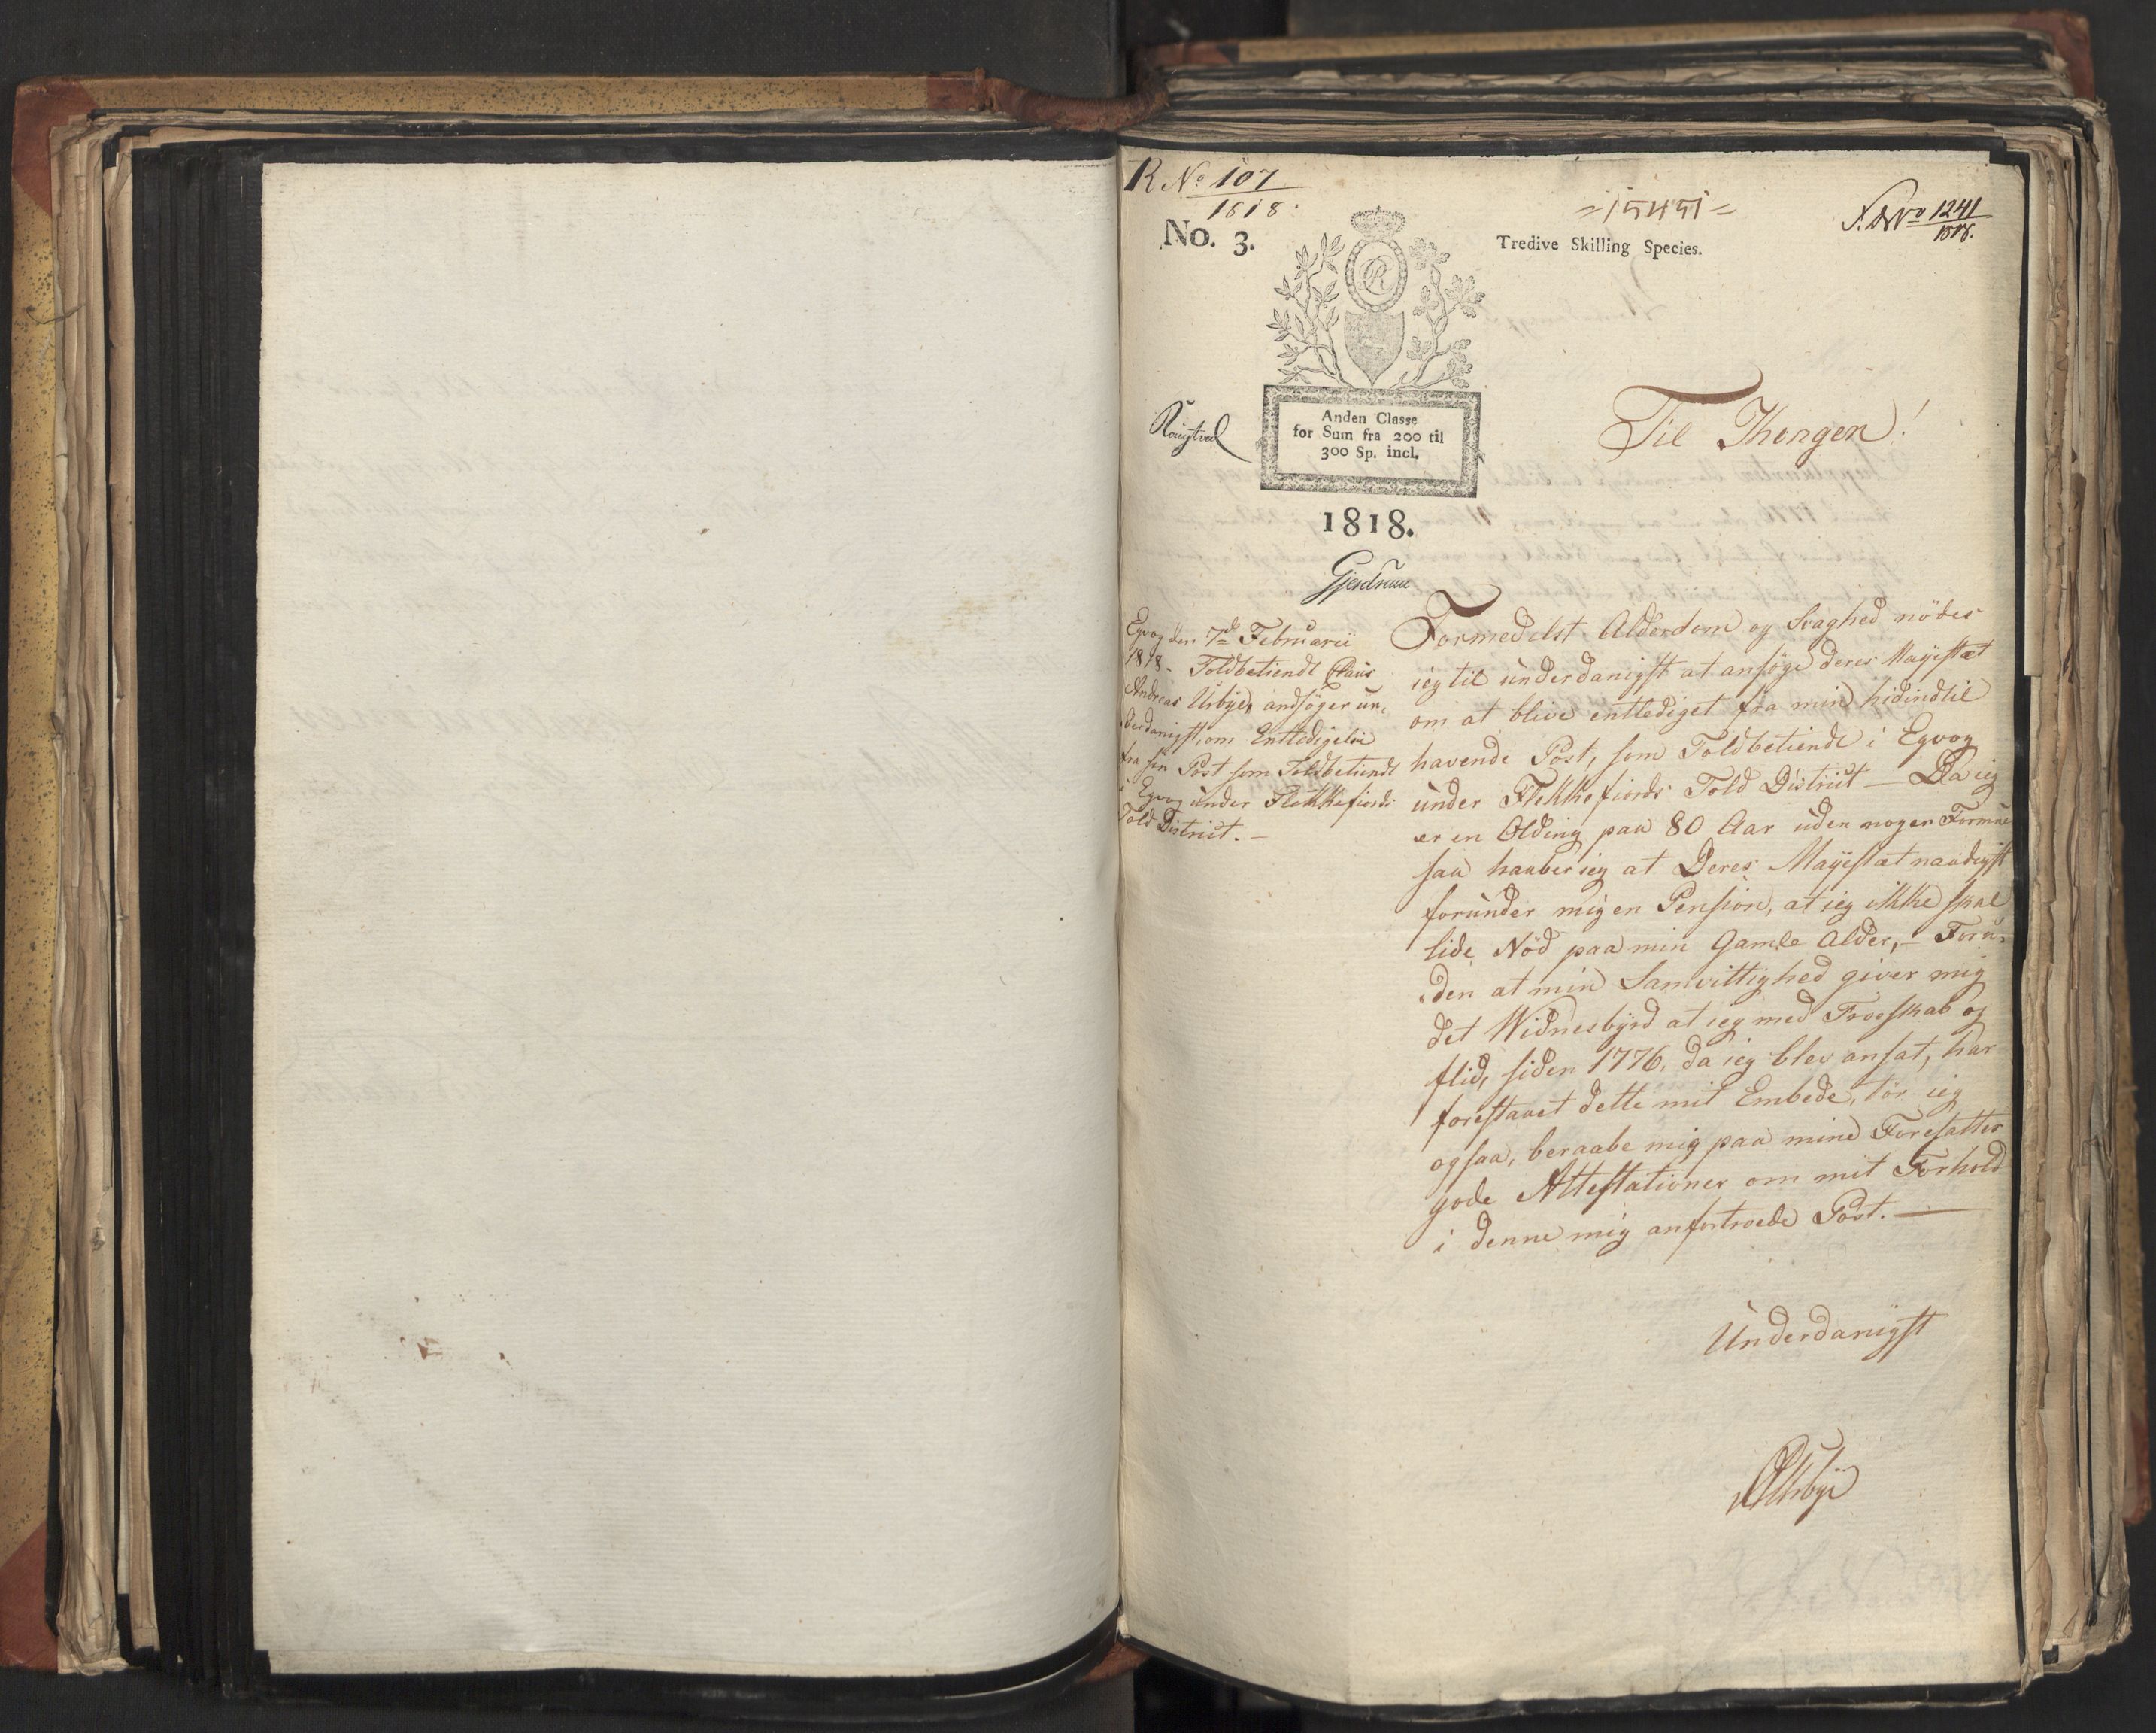 R No 107
1818.
No. 3.
=15451=
Tredive Skilling Species.
1241
1818.
R
Anden Classe
for Sum fra 200 til
300 Sp. incl.
1818.
Gjerdrum
Til Kongen!
Egvog den 7de Februarii
1818. Toldbetiendt Claus
Andreas Usbye, andsøger un-
derdanigst, om Entledigelse
fra sin Post som Toldbetiendt
i Egvog under Flekkefiords
Told District. —
Formedelst Alderdom og Svaghed nødes
ieg til underdanigst at ansøge Deres Mayestæt
om at blive entlediget fra min hidindtil
havende Post, som Toldbetiendt i Egvog
under Flekkefiords Told District — Da ieg
er en Olding paa 80 Aar uden nogen Formue
saa haaber ieg at Deres Mayestæt naadigst
forunder mig en Pension, at ieg ikke skal
lide Nød paa min Gamle Alder, — Foru-
den at min Samvittighed giver mig
det Widnesbyrd at ieg med Troeskab og
flid, siden 1776, da ieg blev ansat, har
forestaaet dette mit Embede, tør ieg
ogsaa, beraabe mig paa mine Foresatter
gode Attestationer om mit Forhold
i denne mig anfortroede Post. —
Underdanigst